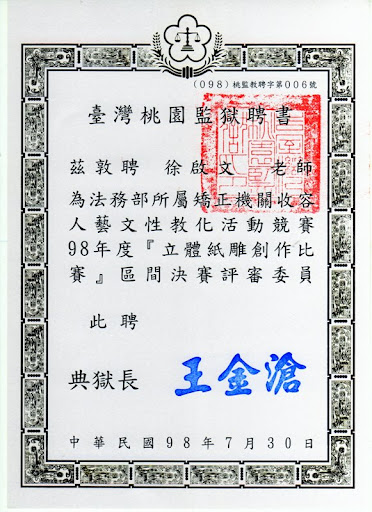 (098)桃監教聘字第006號
臺灣桃園監獄聘書
茲敦聘 徐啟文 老師
為法務部所屬矯正機關收容
人藝文性教化活動競賽
98年度『立體紙雕創作比
賽』區間決賽評審委員
此聘
典獄長 王金滄
中華民國98年7月30日